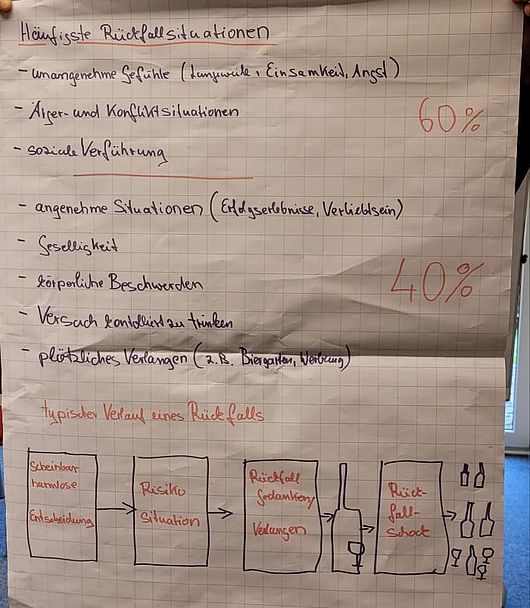 Häufigste Rückfallsituationen
- unangenehme Gefühle (Langeweile, Einsamkeit, Angst)
- Ärger- und Konfliktsituationen
60%
- soziale Verführung
- angenehme Situationen (Erfolgserlebnisse, Verliebtsein)
- Geselligkeit
- körperliche Beschwerden
40%
- Versuch kontrolliert zu trinken
- plötzliches Verlangen (z.B. Biergarten, Werbung)
typischer Verlauf eines Rückfalls
Scheinbar
harmlose
Entscheidung
Risiko
Situation
Rückfall
gedanken/
Verlangen
Rück-
fall-
schock